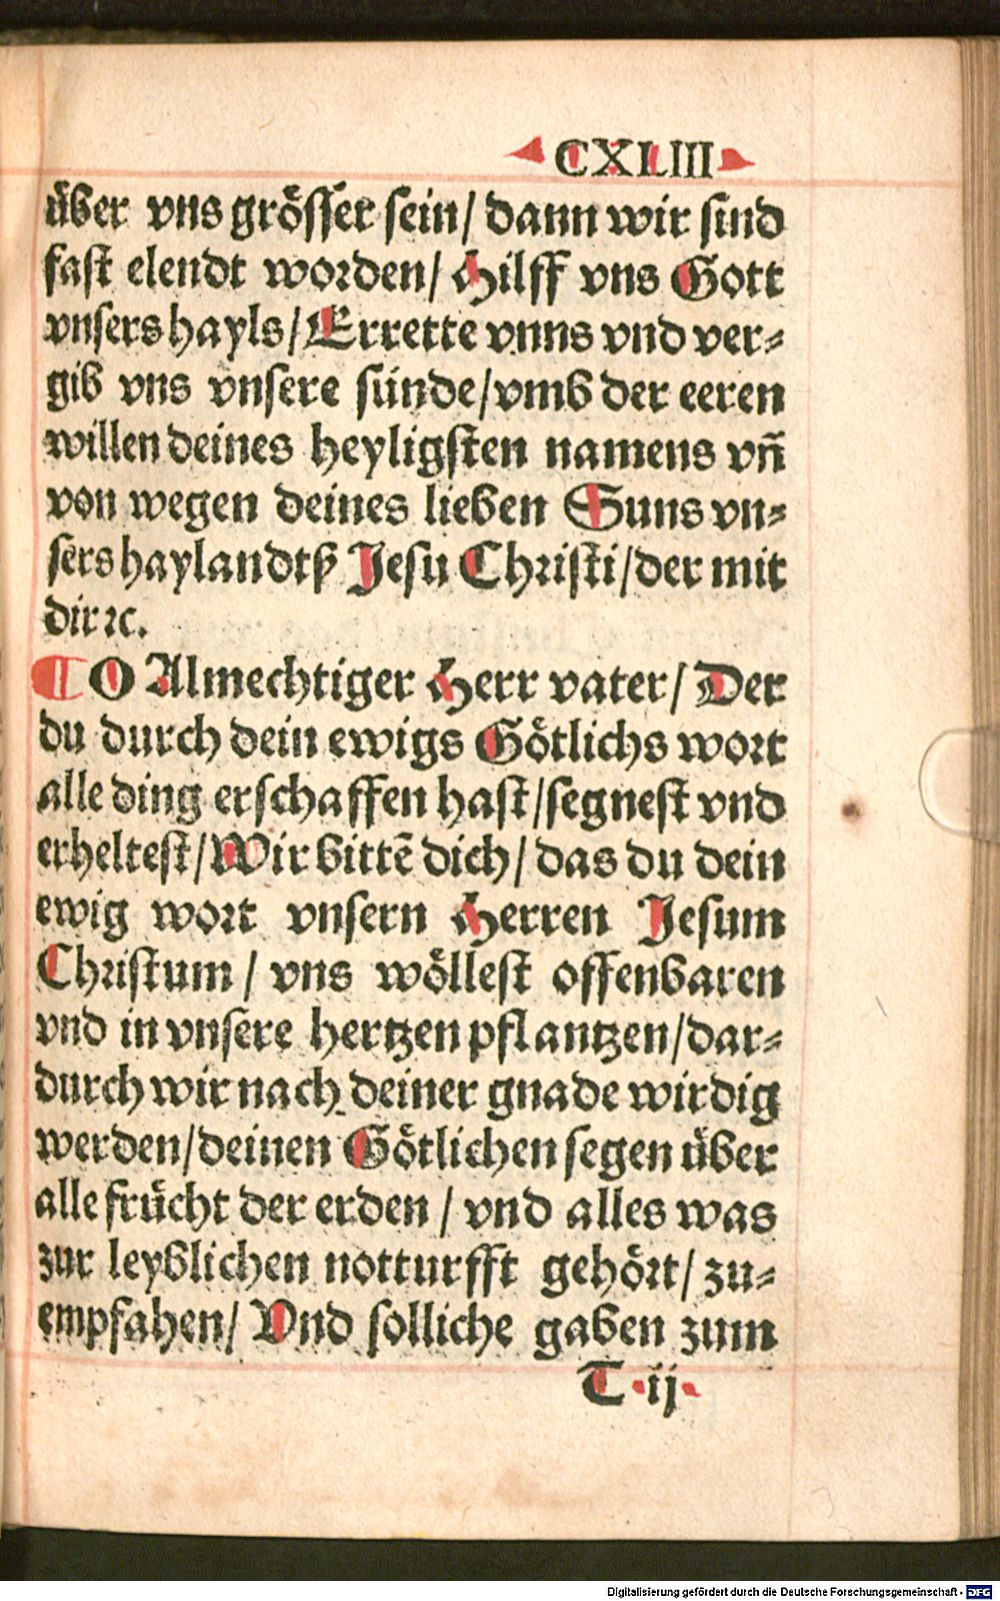 CXLIII
über vns grösser sein/ dann wir sind
fast elendt worden/ Hilff vns Gott
vnsers hayls/ Errette vnns vnd ver⸗
gib vns vnsere sünde/vmb der eeren
willen deines heyligsten namens vñ
von wegen deines lieben Suns vn⸗
sers haylandtß Jesu Christi/der mit
dir ꝛc.
¶ O Almechtiger Herr vater/ Der
du durch dein ewigs Götlichs wort
alle ding erschaffen hast/segnest vnd
erheltest/Wir bittē dich/ das du dein
ewig wort vnsern Herren Jesum
Christum/ vns wöllest offenbaren
vnd in vnsere hertzen pflantzen/dar⸗
durch wir nach deiner gnade wirdig
werden/deinen Götlichen segen über
alle frücht der erden/ vnd alles was
zur leyblichen notturfft gehört/ zu⸗
empfahen/ Vnd solliche gaben zum
T ij
Digitalisierung gefördert durch die Deutsche Forschungsgemeinschaft - DFG